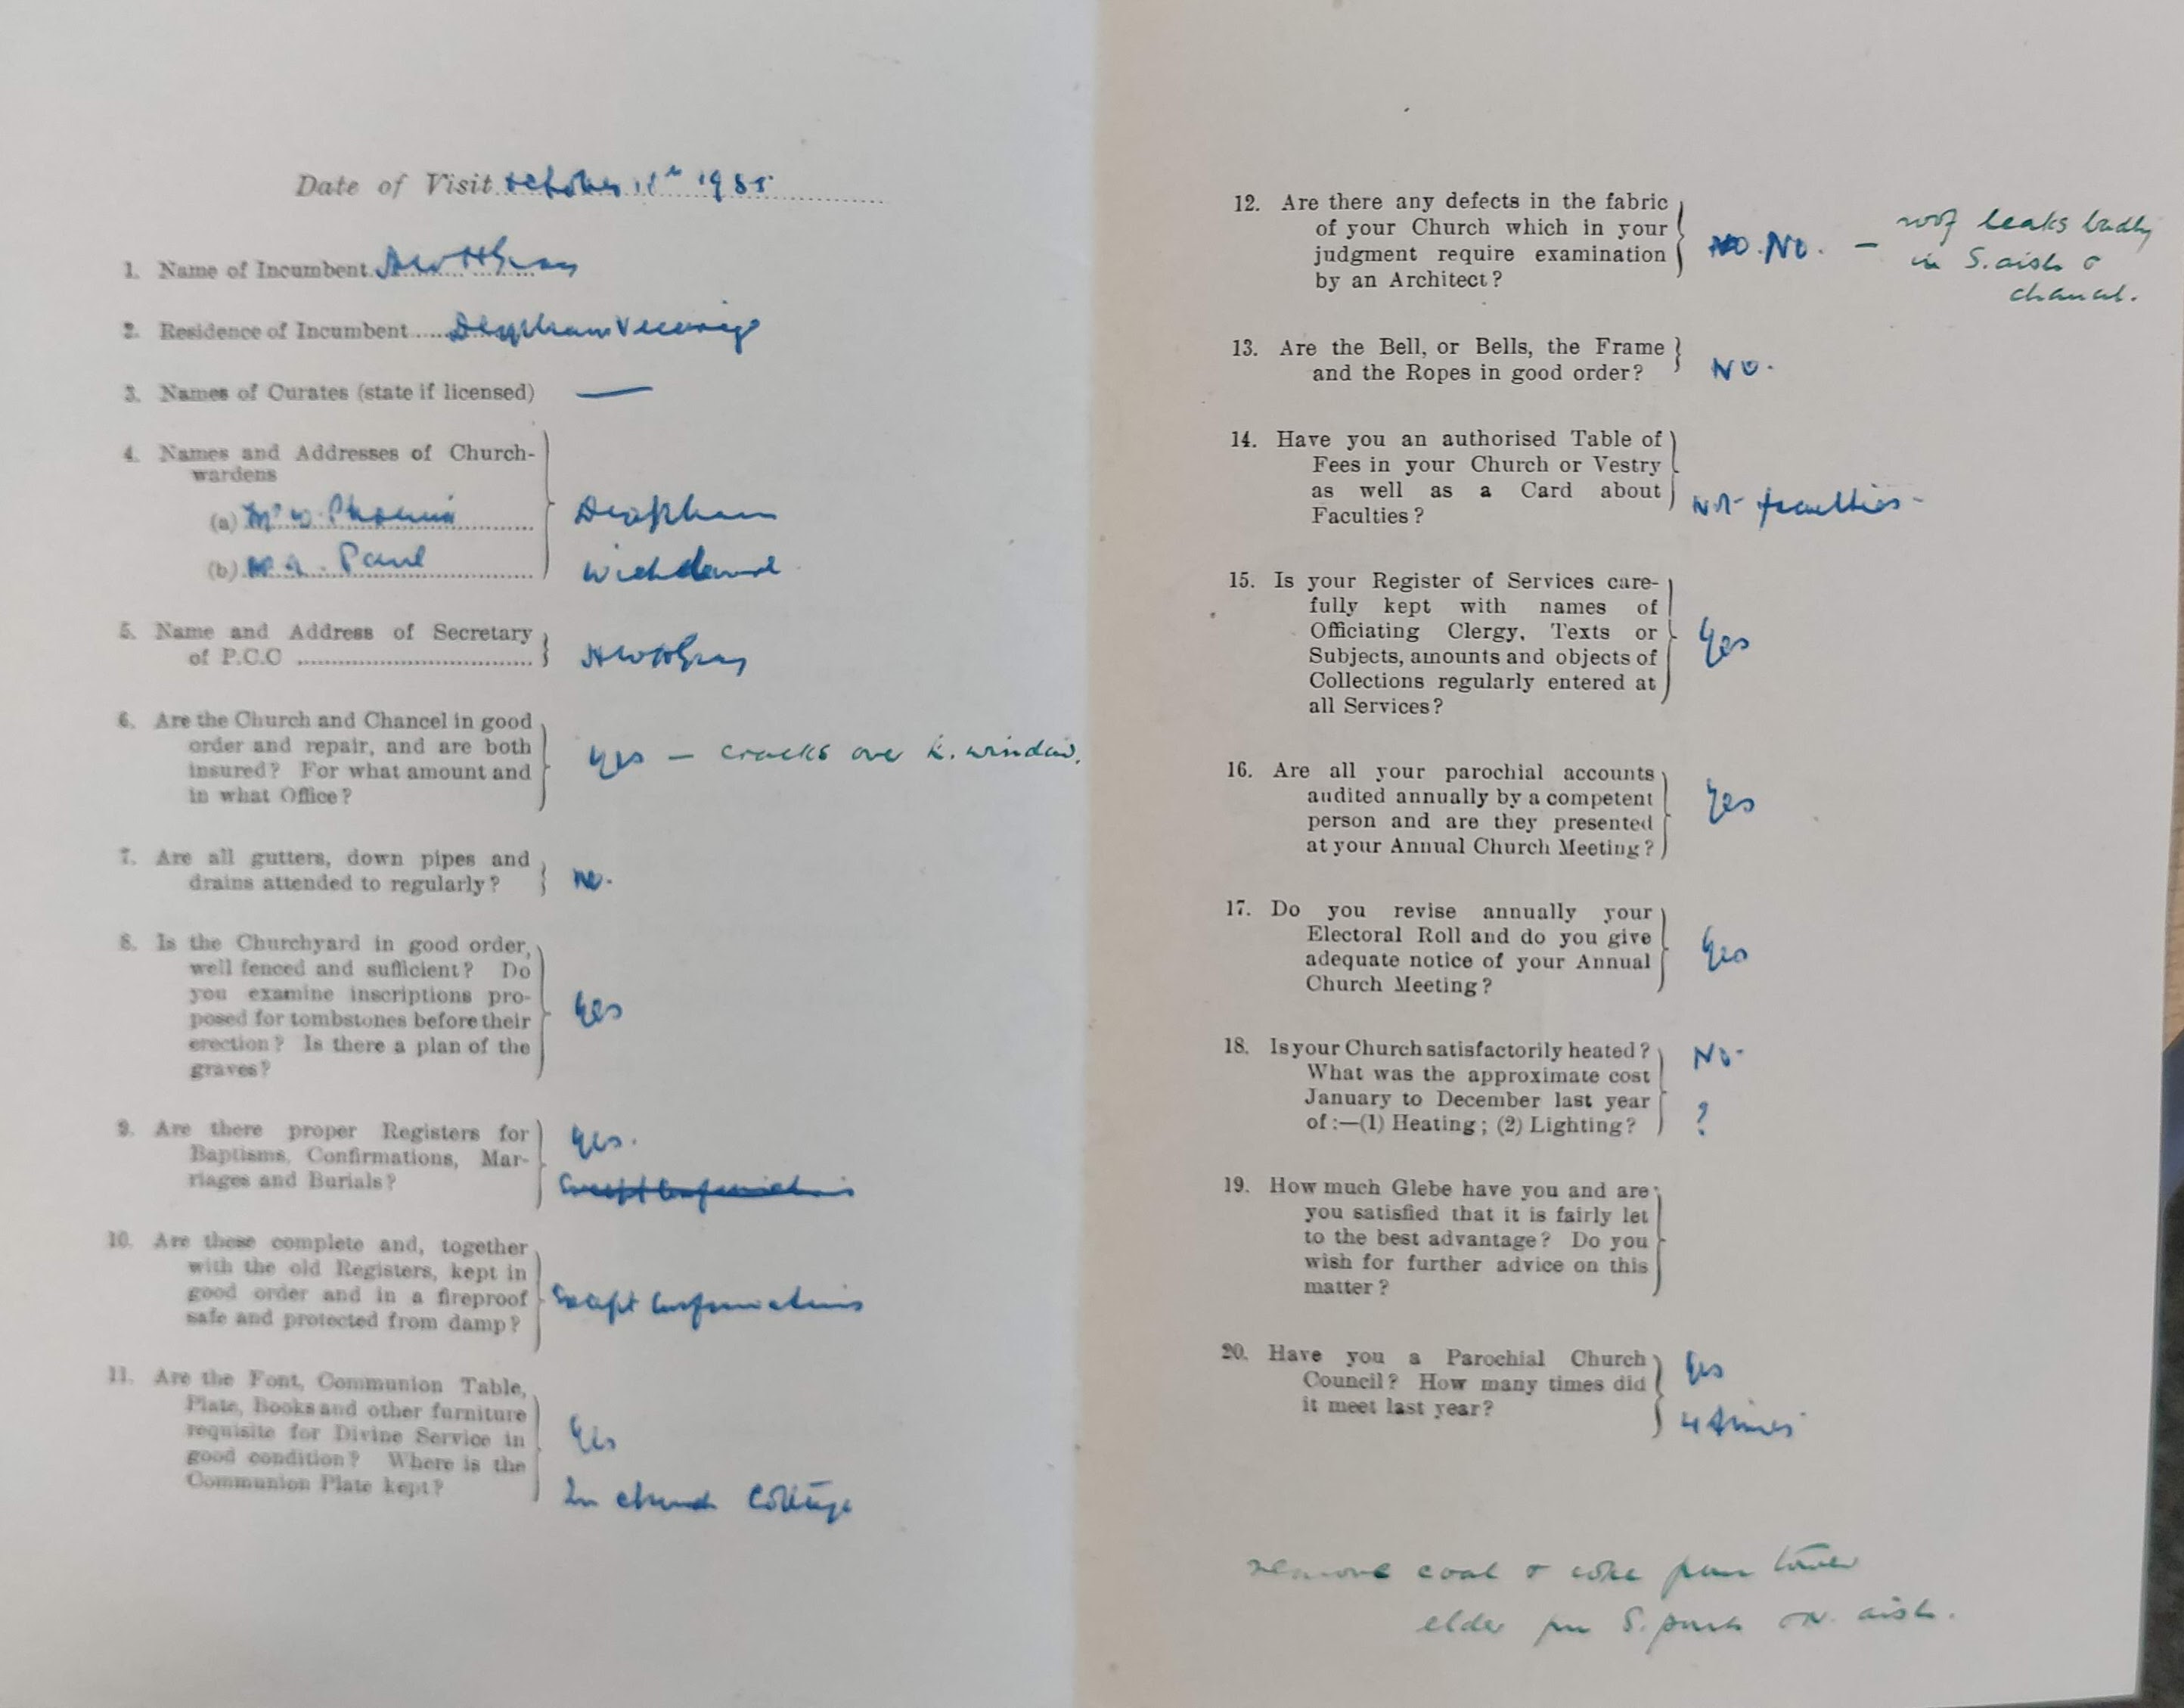 Date of Visit October 11th 1955
1. Name of Incumbent
2. Residence of Incumbent Deopham Vicarage
3. Names of Curates (state if licensed) —
4. Names and Addresses of Church-
wardens
(a) Mr W. Phoenix Deopham
(b) Paul Wicklewood
5. Name and Address of Secretary
of P.C.C
6. Are the Church and Chancel in good
order and repair, and are both
insured? For what amount and
in what Office?
Yes — cracks over window.
7. Are all gutters, down pipes and
drains attended to regularly?
no.
8. Is the Churchyard in good order,
well fenced and sufficient? Do
you examine inscriptions pro-
posed for tombstones before their
erection? Is there a plan of the
graves?
Yes
9. Are there proper Registers for
Baptisms, Confirmations, Mar-
riages and Burials?
Yes.
Except Confirmations
10. Are these complete and, together
with the old Registers, kept in
good order and in a fireproof
safe and protected from damp?
Except Confirmations
11. Are the Font, Communion Table,
Plate, Books and other furniture
requisite for Divine Service in
good condition? Where is the
Communion Plate kept?
Yes
In church cottage
12. Are there any defects in the fabric
of your Church which in your
judgment require examination
by an Architect?
No. — roof leaks badly
in S. aisle &
chancel.
13. Are the Bell, or Bells, the Frame
and the Ropes in good order?
No.
14. Have you an authorised Table of
Fees in your Church or Vestry
as well as a Card about
Faculties?
Not faculties
15. Is your Register of Services care-
fully kept with names of
Officiating Clergy, Texts or
Subjects, amounts and objects of
Collections regularly entered at
all Services?
Yes
16. Are all your parochial accounts
audited annually by a competent
person and are they presented
at your Annual Church Meeting?
Yes
17. Do you revise annually your
Electoral Roll and do you give
adequate notice of your Annual
Church Meeting?
Yes
18. Is your Church satisfactorily heated?
What was the approximate cost
January to December last year
of:—(1) Heating; (2) Lighting?
No
?
19. How much Glebe have you and are
you satisfied that it is fairly let
to the best advantage? Do you
wish for further advice on this
matter?
20. Have you a Parochial Church
Council? How many times did
it meet last year?
Yes
4 times
remove coal & coke from tower
elder from S. porch & N. aisle.